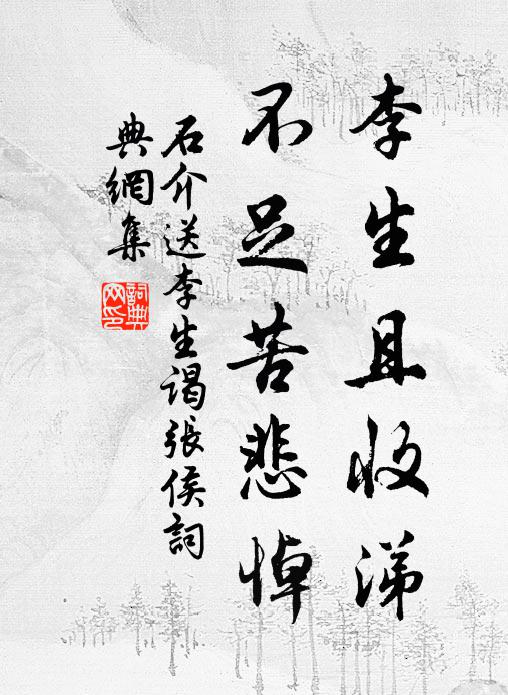 李生且收涕
不足苦悲悼
石介送李生谒張侯詞
典網集
詞典網印